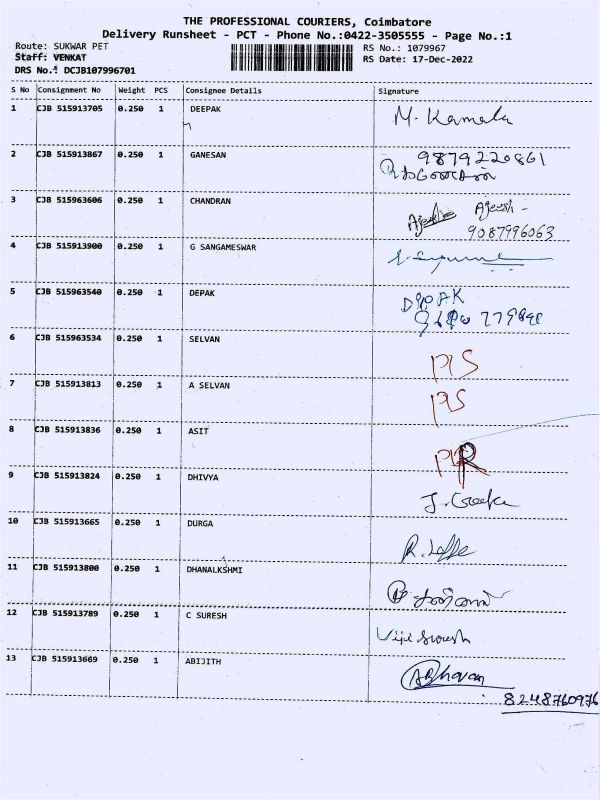 THE PROFESSIONAL COURIERS, Coimbatore
Delivery Runsheet - PCT - Phone No.:0422-3505555 - Page No.:1
Route: SUKWAR PET RS No.: 1079967
Staff: VENKAT RS Date: 17-Dec-2022
DRS No.: DCJB107996701
S No Consignment No Weight PCS Consignee Details Signature
1 CJB 515913705 0.250 1 DEEPAK M. Kamala
2 CJB 515913867 0.250 1 GANESAN 9879220861
3 CJB 515963606 0.250 1 CHANDRAN Ajeesh -
9087996063
4 CJB 515913900 0.250 1 G SANGAMESWAR
5 CJB 515963540 0.250 1 DEPAK DIPAK
6 CJB 515963534 0.250 1 SELVAN P/S
7 CJB 515913813 0.250 1 A SELVAN P/S
8 CJB 515913836 0.250 1 ASIT
9 CJB 515913824 0.250 1 DHIVYA
10 CJB 515913665 0.250 1 DURGA
11 CJB 515913800 0.250 1 DHANALKSHMI
12 CJB 515913789 0.250 1 C SURESH Viji Suresh
13 CJB 515913669 0.250 1 ABIJITH
8248760976